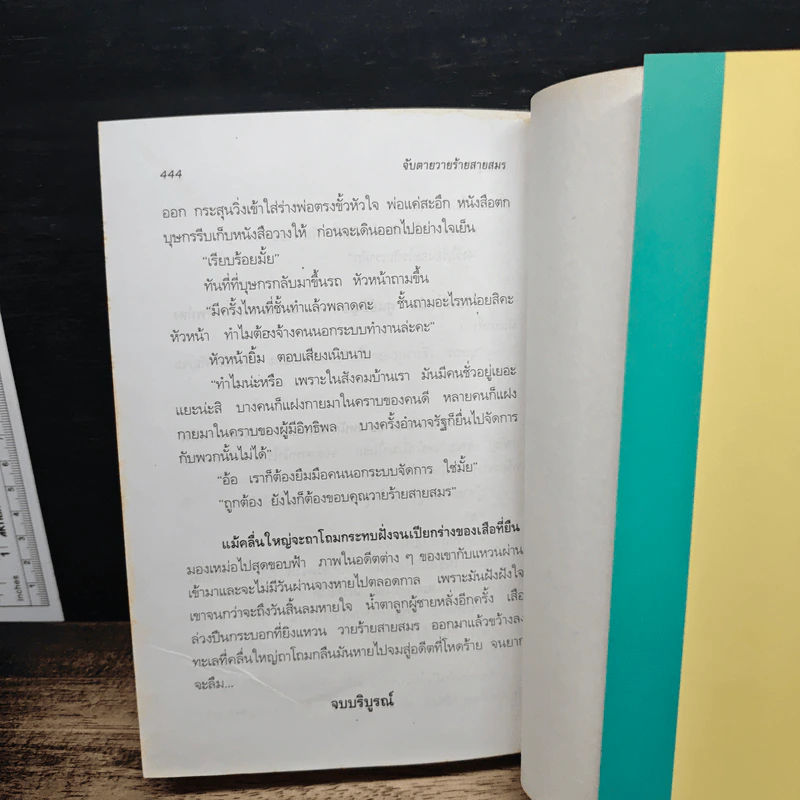 444 จับตายวายร้ายสายสมร
ออก กระสุนวิ่งเข้าใส่ร่างพ่อตรงขั้วหัวใจ พ่อแค่สะอึก หนังสือตก
บุษกรรีบเก็บหนังสือวางให้ ก่อนจะเดินออกไปอย่างใจเย็น
“เรียบร้อยมั้ย”
ทันทีที่บุษกรกลับมาขึ้นรถ หัวหน้าถามขึ้น
“มีครั้งไหนที่ชั้นทำแล้วพลาดคะ ชั้นถามอะไรหน่อยสิคะ
หัวหน้า ทำไมต้องจ้างคนนอกระบบทำงานล่ะคะ”
หัวหน้ายิ้ม ตอบเสียงเนิบนาบ
“ทำไมน่ะหรือ เพราะในสังคมบ้านเรา มันมีคนชั่วอยู่เยอะ
แยะน่ะสิ บางคนก็แฝงกายมาในคราบของคนดี หลายคนก็แฝง
กายมาในคราบของผู้มีอิทธิพล บางครั้งอำนาจรัฐก็ยื่นไปจัดการ
กับพวกนั้นไม่ได้”
“อ้อ เราก็ต้องยืมมือคนนอกระบบจัดการ ใช่มั้ย”
“ถูกต้อง ยังไงก็ต้องขอบคุณวายร้ายสายสมร”
แม้คลื่นใหญ่จะถาโถมกระทบฝั่งจนเปียกร่างของเสือที่ยืน
มองเหม่อไปสุดขอบฟ้า ภาพในอดีตต่าง ๆ ของเขากับแหวนผ่าน
เข้ามาและจะไม่มีวันผ่านจางหายไปตลอดกาล เพราะมันฝังฝังใจ
เขาจนกว่าจะถึงวันสิ้นลมหายใจ น้ำตาลูกผู้ชายหลั่งอีกครั้ง เสือ
ล่วงปืนกระบอกที่ยิงแหวน วายร้ายสายสมร ออกมาแล้วขว้างลง
ทะเลที่คลื่นใหญ่ถาโถมกลืนมันหายไปจมสู่อดีตที่โหดร้าย จนยาก
จะลืม...
จบบริบูรณ์
inches